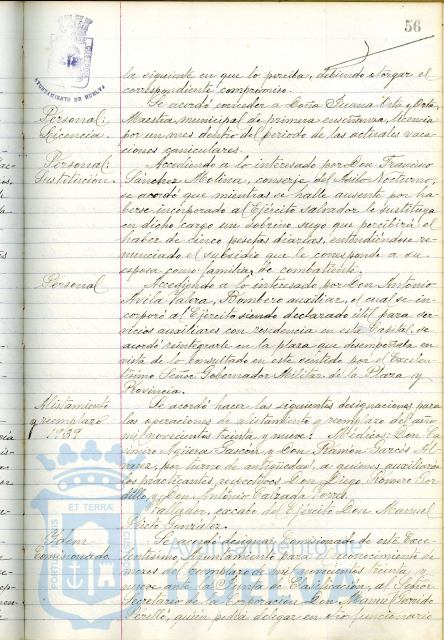 56
AYUNTAMIENTO DE HUELVA
la siguiente en que lo perciba, debiendo otorgar el
correspondiente compromiso.
Personal:
Licencia.
Se acordó conceder a Doña Juana Orta y Orta,
Maestra municipal de primera enseñanza, licencia
por un mes dentro del período de las actuales vaca-
ciones caniculares.
Personal:
Sustitución.
Accediendo a lo interesado por Don Francisco
Sánchez Molina, conserje del Asilo Nocturno,
se acordó que mientras se halle ausente por ha-
berse incorporado al Ejército Salvador le sustituya
en dicho cargo un sobrino suyo que percibirá el
haber de cinco pesetas diarias, entendiéndose re-
nunciado el subsidio que le corresponde a su
esposa como familiar de combatiente.
Personal
Accediendo a lo interesado por Don Antonio
Avila Valera, Bombero auxiliar, el cual se in-
corporó al Ejército siendo declarado útil para ser-
vicios auxiliares con residencia en esta Capital, se
acordó reintegrarle en la plaza que desempeñaba en
vista de lo consultado en este sentido por el Excelen-
tísimo Señor Gobernador Militar de la Plaza y
Provincia.
Alistamiento
y reemplazo
1939
Se acordó hacer las siguientes designaciones para
las operaciones de alistamiento y reemplazo del año
mil novecientos treinta y nueve: Médicos: Don Ca-
simiro Agüera Gascón y Don Ramón Garcés
por turno de antigüedad, a quienes auxiliarán
los practicantes respectivos Don Diego Romero
y Don Antonio Calzada
Tallador, excabo del Ejército Don Manuel
González.
Idem
Comisionado
Se acordó designar Comisionado de este Exce-
lentísimo Ayuntamiento para el reconocimiento de
mozos del reemplazo de mil novecientos treinta y
nueve ante la Junta de Clasificación, al Señor
Secretario de la Corporación Don Manuel Garrido
Perelló, quien podrá delegar en otro funcionario
PORTUS MARIS
ET TERRAE
CUSTODIA
Ayuntamiento de
HUELVA